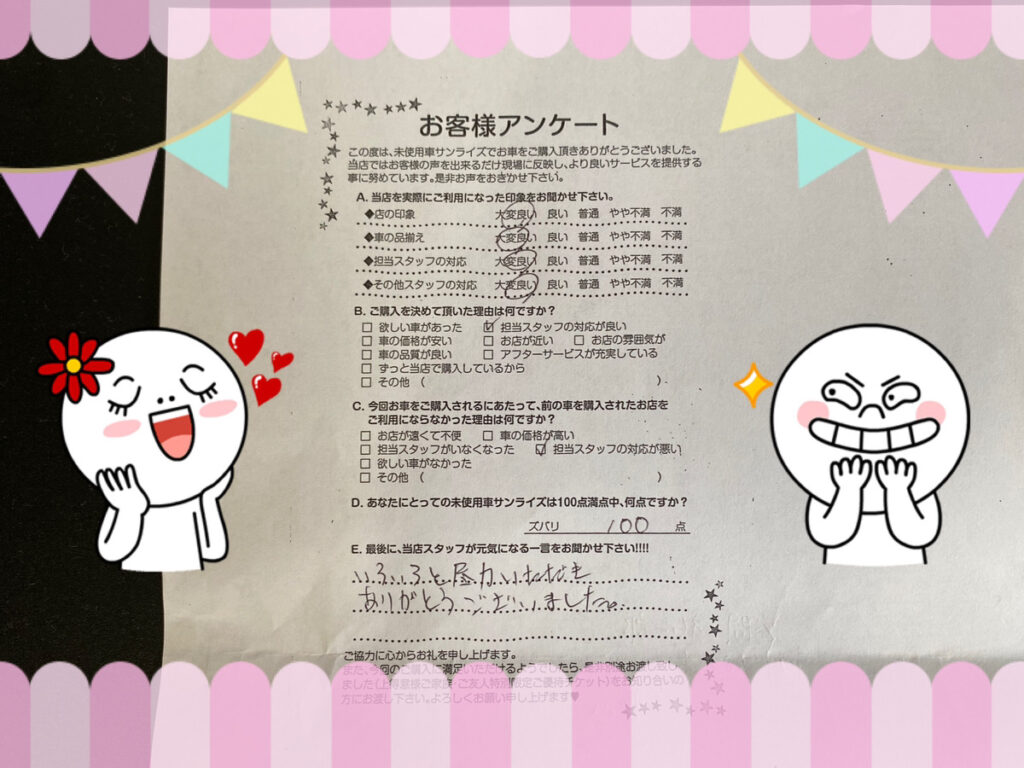 お客様アンケート
この度は、未使用車サンライズでお車をご購入頂きありがとうございました。
当店ではお客様の声を出来るだけ現場に反映し、より良いサービスを提供する
事に努めています。是非お声をおきかせ下さい。
A. 当店を実際にご利用になった印象をお聞かせ下さい。
◆店の印象 大変良い 良い 普通 やや不満 不満
◆車の品揃え 大変良い 良い 普通 やや不満 不満
◆担当スタッフの対応 大変良い 良い 普通 やや不満 不満
◆その他スタッフの対応 大変良い 良い 普通 やや不満 不満
B. ご購入を決めて頂いた理由は何ですか？
□ 欲しい車があった ☑ 担当スタッフの対応が良い
□ 車の価格が安い □ お店が近い □ お店の雰囲気が
□ 車の品質が良い □ アフターサービスが充実している
□ ずっと当店で購入しているから
□ その他（ ）
C. 今回お車をご購入されるにあたって、前の車を購入されたお店を
ご利用にならなかった理由は何ですか？
□ お店が遠くて不便 □ 車の価格が高い
□ 担当スタッフがいなくなった ☑ 担当スタッフの対応が悪い
□ 欲しい車がなかった
□ その他（ ）
D. あなたにとっての未使用車サンライズは100点満点中、何点ですか？
ズバリ 100 点
E. 最後に、当店スタッフが元気になる一言をお聞かせ下さい!!!!
いろいろと尽力いただき
ありがとうございました。
ご協力に心からお礼を申し上げます。
また、今回のご購入に満足いただけるようでしたら、是非別途お渡し致し
ました（上得意様ご家族・ご友人特別限定ご優待チケット）をお知り合いの
方にお渡し下さい。よろしくお願い申し上げます♥